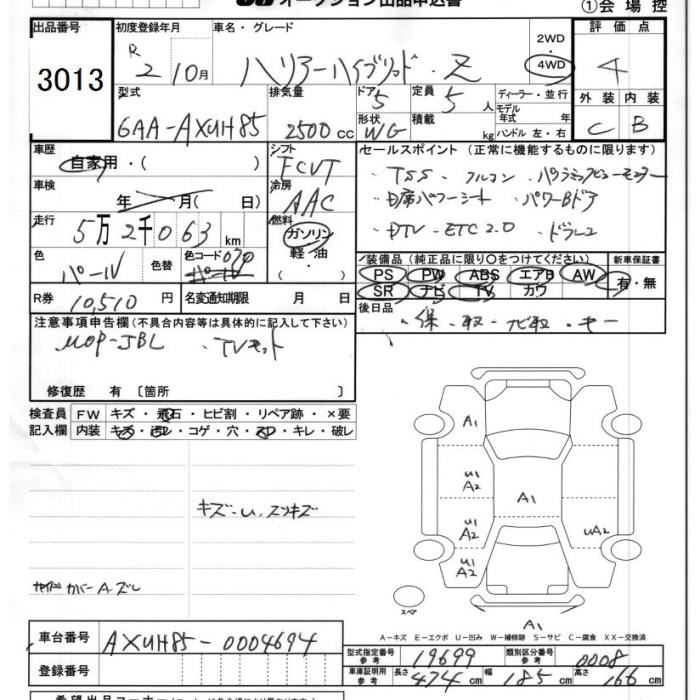 オークション出品申込書 ①会場控
出品番号 3013
初度登録年月 R 2 10月
車名・グレード ハリアーハイブリッド・Z
2WD・4WD
評価点 4
外装 C 内装 B
型式 6AA-AXUH85
排気量 2500cc
ドア 5 形状 WG
定員 5人 積載 kg
ディーラー・並行
モデル年式 年
ハンドル 左・右
車歴 自家用・( )
シフト FCVT
セールスポイント(正常に機能するものに限ります)
・TSS ・フルマン ・パノラミックビューモニター
・D席パワーシート ・パワーBドア
・DTV ・ETC2.0 ・ドラレコ
車検 年 月( 日)
冷房 AAC
走行 5万2千063km
燃料 ガソリン・軽油・( )
色 パール 色替 色コード 070 パール
R券 10,510円 名変通知期限 月 日
装備品(純正品に限り○をつけてください) 新車保証書
PS PW ABS エアB AW 有・無
SR ナビ TV カワ
後日品 ・保・取・ナビ取・キー
注意事項申告欄(不具合内容等は具体的に記入して下さい)
MOP-JBL ・TVキット
修復歴 有〔箇所 〕
検査員 FW キズ・飛石・ヒビ割・リペア跡・×要
記入欄 内装 キズ・汚レ・コゲ・穴・スレ・キレ・破レ
A1
U1 A2
A1
U1 A2
UA2
U1 A2
キズ・U、スリキズ
カバーAズレ
スペア
A1
A-キズ E-エクボ U-凹み W-補修跡 S-サビ C-腐食 XX-交換済
車台番号 AXUH85-0004694
登録番号
型式指定番号 参考 19699 類別区分番号 参考 0008
車庫証明用 参考 長さ 474cm 幅 185cm 高さ 166cm